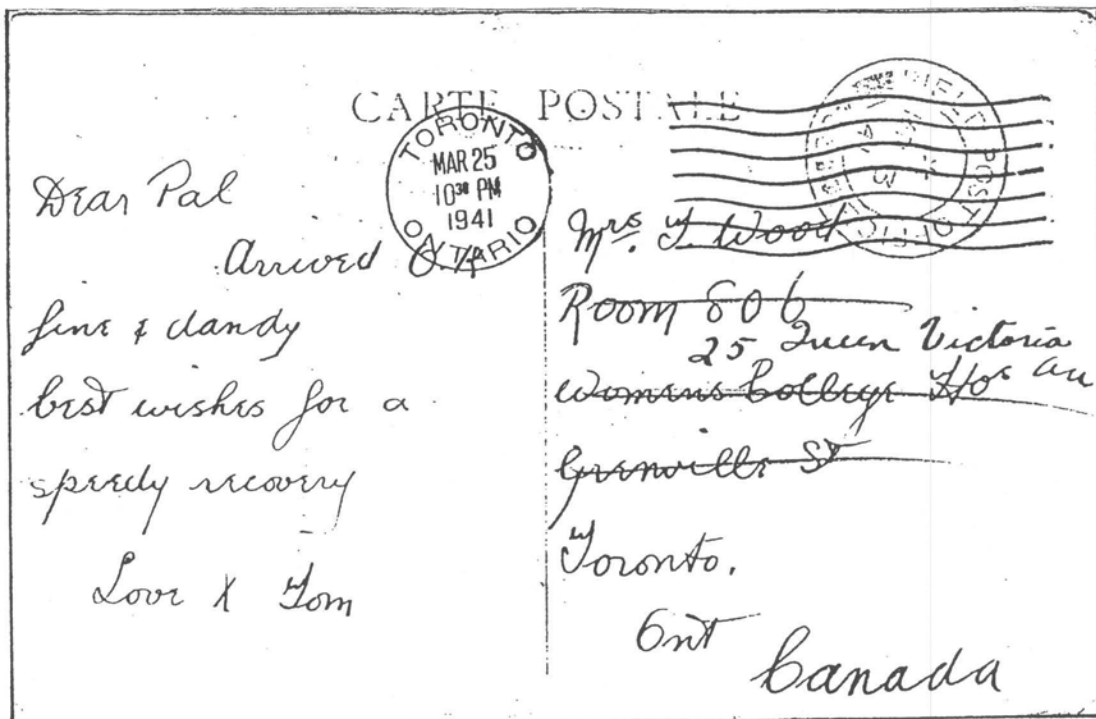 CARTE POSTALE
TORONTO
MAR 25
10³⁰ PM
1941
ONTARIO
FIELD POST OFFICE
Dear Pal
Arrived O.K
fine & dandy
best wishes for a
speedy recovery
Love X Tom
Mrs. T. Wood
Room 806
25 Queen Victoria
Ave
Womens College Hos
Grenville St
Toronto.
Ont
Canada